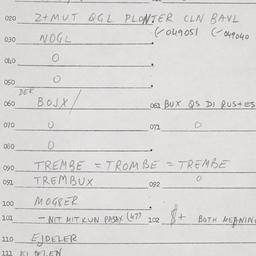 020 Z+MUT QGL PLONTER CLN BAVL
049051 049040
030 NOGL
040 O
050 O
DER
060 BOJX / 061 BUX QS DI RUSTES
070 O 071 O
080 O
090 TREMBE = TROMBE = TREMBE
091 TREMBUX 092 O
100 MOGSER
101 - NIT MIT KUN PASAX (477 102 + BOTH MEANIN
110 EJDELER
111 EJDELEN